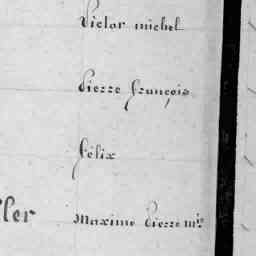 Victor michel
Pierre françois
félix
ller Maxime Pierre m<sup>ie</sup>